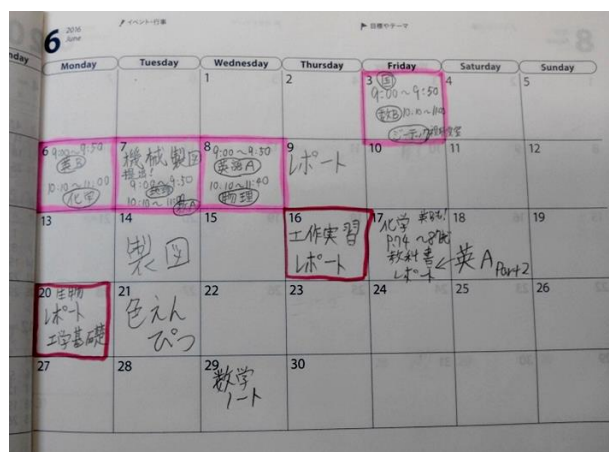 6
2016
June
イベント・行事
目標やテーマ
Monday
Tuesday
Wednesday
Thursday
Friday
Saturday
Sunday
1
2
3 国
9:00〜9:50
数B 10:10〜11:00
4
5
6 9:00〜9:50
英B
10:10〜11:00
化学
7
機械製図
提出!
9:00〜9:50
10:10〜
8
9:00〜9:50
英語A
10:10〜11:40
物理
9
レポート
10
11
12
13
14
製図
15
16
工作実習
レポート
17
化学
教科書
レポート
英A Part2
18
19
20 生物
レポート
工学基礎
21
色えん
ぴつ
22
23
24
25
26
27
28
29
数学
ノート
30